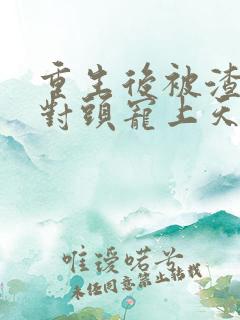 重生後被渣
對頭寵上天
唯讀喏芣
未經同意禁止轉載